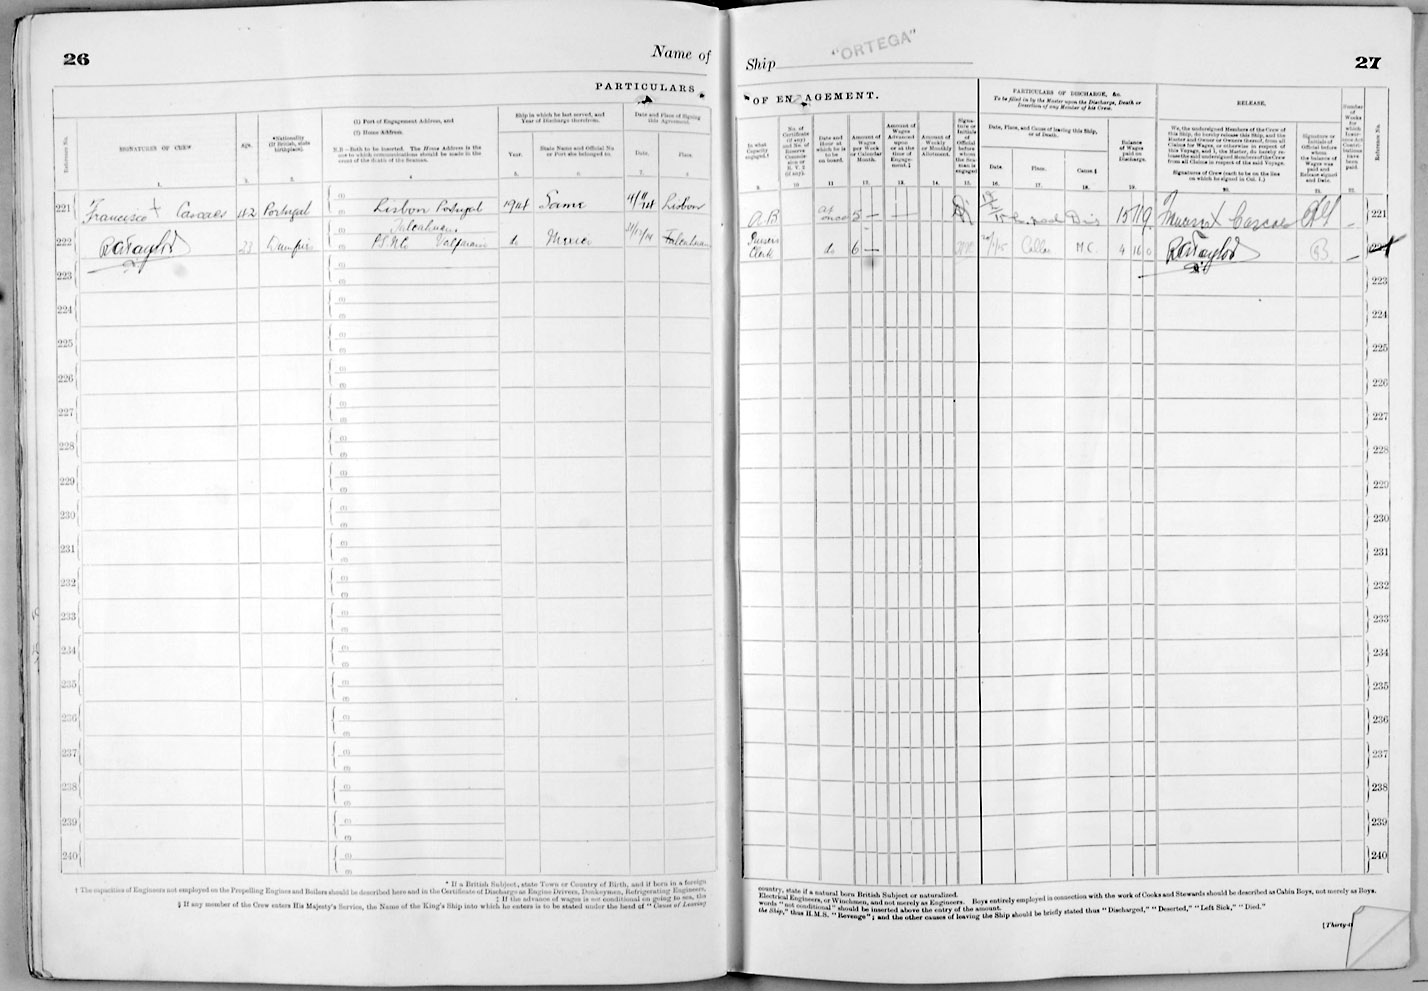 26
Name of
Ship "ORTEGA"
27
PARTICULARS
OF ENGAGEMENT.
PARTICULARS OF DISCHARGE, &c.
To be filled in by the Master upon the Discharge, Death or Desertion of any Member of his Crew.
RELEASE.
Reference No.
SIGNATURES OF CREW
Age.
*Nationality (If British, state birthplace).
(1) Port of Engagement Address, and
(2) Home Address.
N.B.—Both to be inserted. The Home Address is the one to which communications should be made in the event of the death of the Seaman.
Ship in which he last served, and Year of Discharge therefrom.
Year.
State Name and Official No. or Port she belonged to.
Date and Place of Signing this Agreement.
Date.
Place.
In what Capacity engaged.†
Date and Hour at which he is to be on board.
Amount of Wages per Week or Calendar Month.
Amount of Wages Advanced upon or at the time of Engagement.‡
Amount of Weekly or Monthly Allotment.
Signature or Initials of Official before whom the Seaman is engaged
Date, Place, and Cause of leaving this Ship, or of Death.
Date.
Place.
Cause.§
Balance of Wages paid on Discharge.
We, the undersigned Members of the Crew of this Ship, do hereby release this Ship, and the Master and Owner or Owners thereof, from all Claims for Wages, or otherwise in respect of this Voyage, and I, the Master, do hereby release the undersigned Members of the Crew from all Claims in respect of the said Voyage.
Signatures of Crew (each to be on the line on which he signed in Col. 1.)
Signature or Initials of Official before whom the balance of Wages was paid and Release signed and Date.
Reference No.
221 Francisco + Cascaes 42 Portugal Lisbon Portugal 1914 Same Lisbon
A.B at once 5 — — 15 11 9 221
222 RATaylor 23 Dumfries Talcahuano P.S.N.Co Valparaiso do Talcahuano
Pursers Clerk do 6 — Callao 4 16 0 RATaylor
223
224
225
226
227
228
229
230
231
232
233
234
235
236
237
238
239
240
223
224
225
226
227
228
229
230
231
232
233
234
235
236
237
238
239
240
* If a British Subject, state Town or Country of Birth, and if born in a foreign
† The capacities of Engineers not employed on the Propelling Engines and Boilers should be described here and in the Certificate of Discharge as Engine Drivers, Donkeymen, Refrigerating Engineers,
‡ If the advance of wages is not conditional on going to sea, the
§ If any member of the Crew enters His Majesty's Service, the Name of the King's Ship into which he enters is to be stated under the head of "Cause of Leaving
country, state if a natural born British Subject or naturalized.
Electrical Engineers, or Winchmen, and not merely as Engineers. Boys entirely employed in connection with the work of Cooks and Stewards should be described as Cabin Boys, not merely as Boys.
words "not conditional" should be inserted above the entry of the amount.
the Ship," thus H.M.S. "Revenge"; and the other causes of leaving the Ship should be briefly stated thus "Discharged," "Deserted," "Left Sick," "Died."